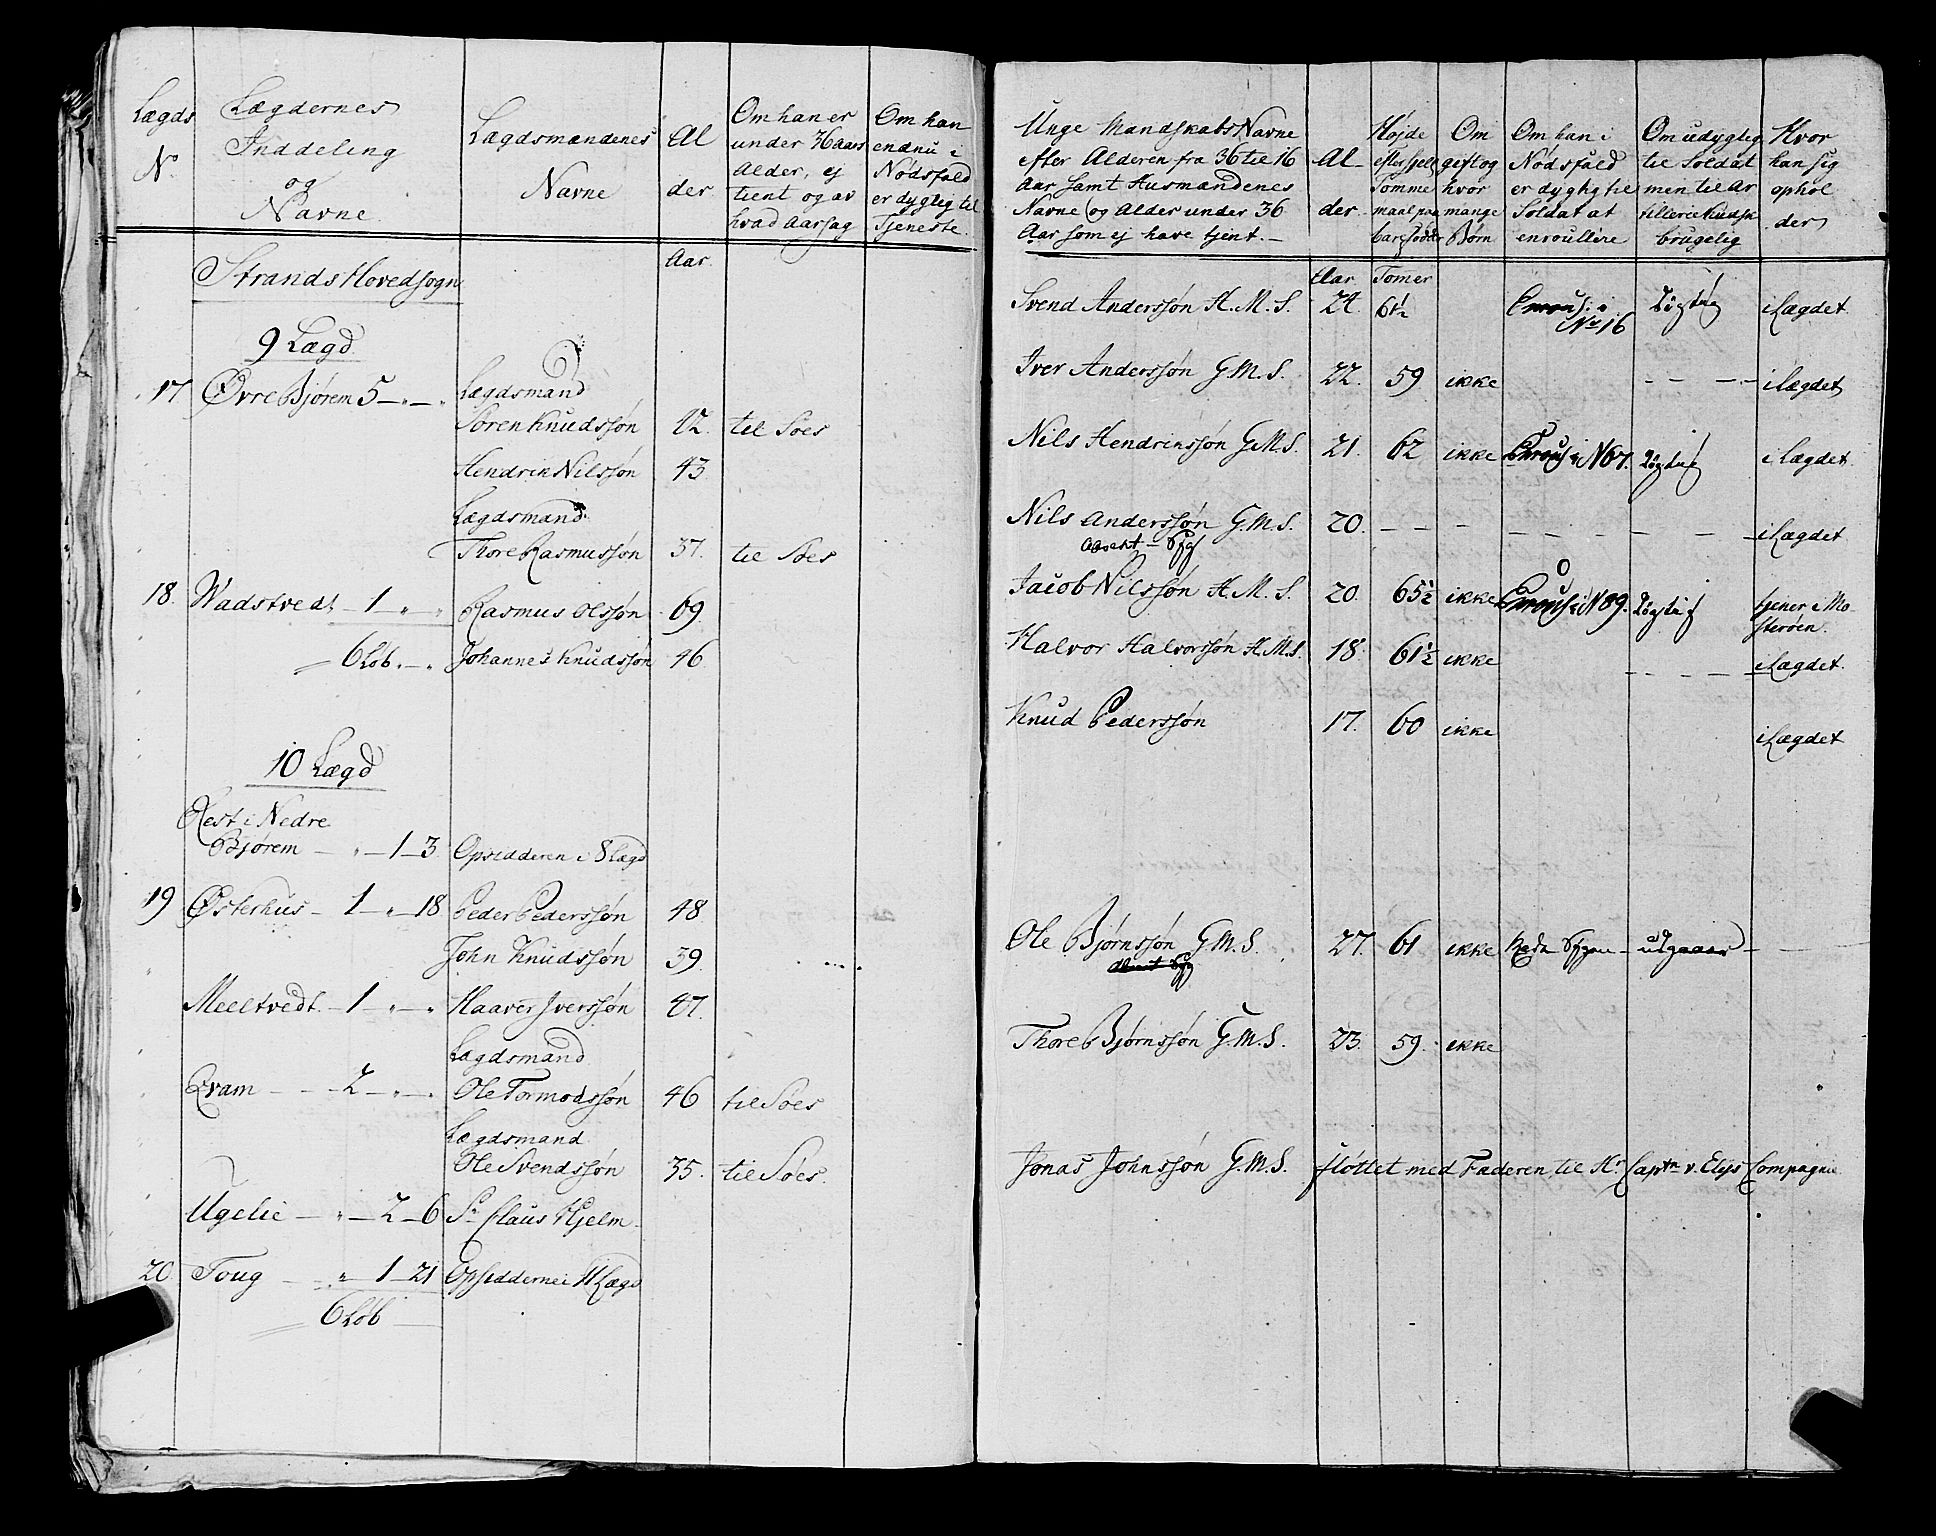 Lægds N°
Lægdernes Inddeling og Navne
Lægdsmændenes Navne
Al der
Om han er under 36 aars Alder, ej tient og av hvad Aarsag
Om han endnu i Nødsfald er dygtig til Tjeneste.
Aar.
Strands Hovedsogn
9 Lægd
17 Øvre Bjørem 5 — " — "
Lægdsmand
Søren Knudssøn 42. til Søes
Hendrik Nilssøn 43
Lægdsmand
Thore Rasmussøn 37. til Søes
18. Wadstvedt — 1 " " Rasmus Olssøn 69.
6 Løb. — " Johannes Knudssøn 46.
10 Lægd
Rest i Nedre
Bjørem — " — 1 — 3 Opsidderen i 8 Lægd
19 Østerhus — 1 — " — 18 Peder Pederssøn 48
John Knudssøn 39.
Meeltvedt. — 1 — " — " Haaver Iverssøn 47.
Lægdsmand
Qvam — — 2 — " — " Ole Tormodssøn 46 til Søes
Lægdsmand
Ole Svendssøn 35. til Søes.
Ugelie — " — 2 — 6 Sr Claus Hjelm
20 Toug — " 1 — 21 Opsidderne i 11 Lægd
6 Løb
Unge Mandskabs Navne
efter Alderen fra 36 til 16
Aar samt Husmændenes
Navne og Alder under 36
Aar som ej have tjent. —
Al- der.
Højde efter Tomme maal paa
Om gift og hvor mange Børn
Om han i Nødsfald er dygtig til Soldat at enroullere
Om udygtig til Soldat men til Artillerie Kudsk brugelig
Hvor han sig ophol der
Aar. Tomer
Svend Anderssøn H. M. S. 24. 61½ No 16 i Lægdet.
Iver Anderssøn G. M. S. 22. 59 ikke — — — i Lægdet
Nils Hendrikssøn G. M. S. 21. 62 ikke i N 67. i Lægdet.
Nils Anderssøn G. M. S. 20. — — — — — — — i Lægdet
Absent — Syg
Jacob Nilssøn H. M. S. 20. 65½ ikke i N 89. tjener i Mo
sterøen.
Halvor Halvorssøn H. M. S. 18. 61½ ikke — — — i Lægdet.
Knud Pederssøn 17. 60 ikke i Lægdet
Ole Bjørnssøn G. M. S. 27. 61 ikke — udgaaer —
Thore Bjørnssøn G. M. S. 23. 59. ikke
Jonas Johnssøn G. M. S. fløttet med Faderen til Hr Captn v. Elys Compagnie